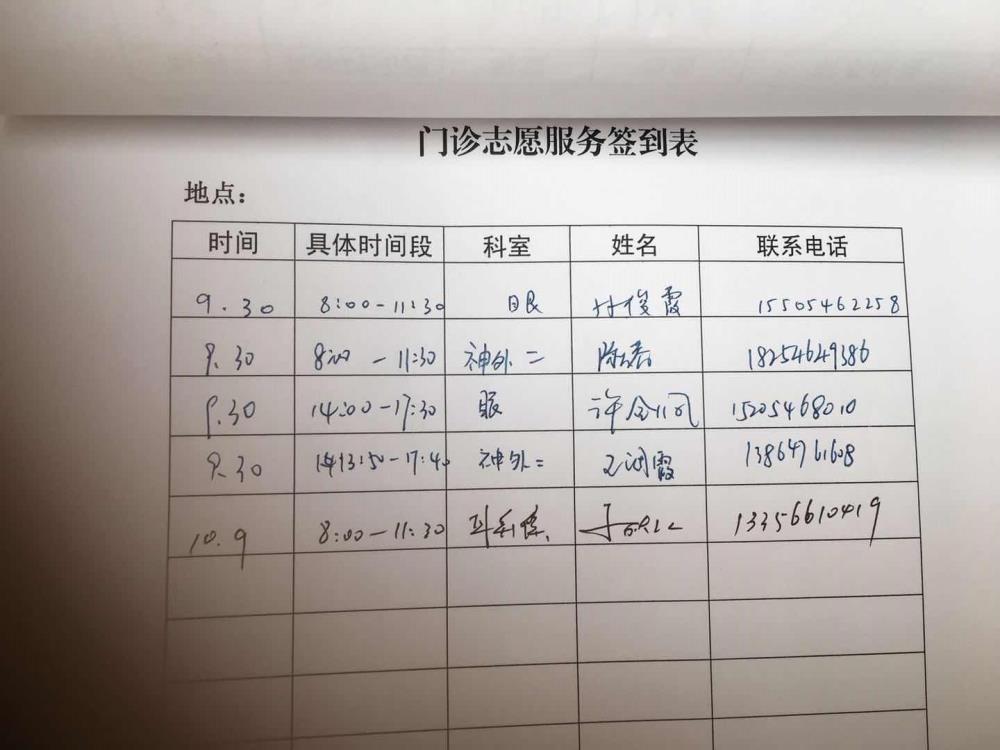 门诊志愿服务签到表
地点：
时间 具体时间段 科室 姓名 联系电话
9.30 8:00-11:30 眼 付俊霞 15505462258
9.30 8:00-11:30 神外二 18254649386
9.30 14:00-17:30 眼 许金凤 15205468010
9.30 13:50-17:40 神外二 王润霞 13864761608
10.9 8:00-11:30 13356610419